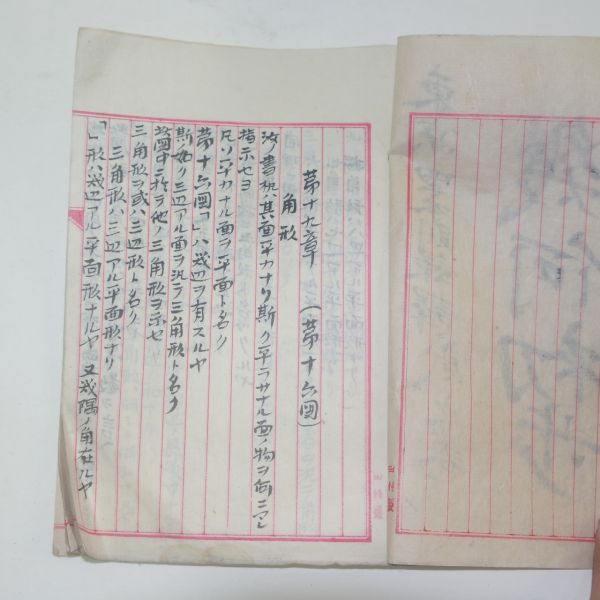 第十九章 （第十六圖）
角形
汝ノ書机ハ其面平カナリ斯ク平ラカナル面ノ物ヲ何ニテモ
指示セヨ
凡ソ平カナル面ヲ平面ト名ク
第十六圖「」ハ幾辺ヲ有スルヤ
斯ノ如ク三辺アル面ヲ汎ク三角形ト名ク
此圖中ニ於テ他ノ三角形ヲ示セ
三角形ヲ或ハ三辺形ト名ク
三角形ハ三辺アル平面形ナリ
「」形ハ幾辺アル平面形ナルヤ 又幾隅ノ角在ルヤ